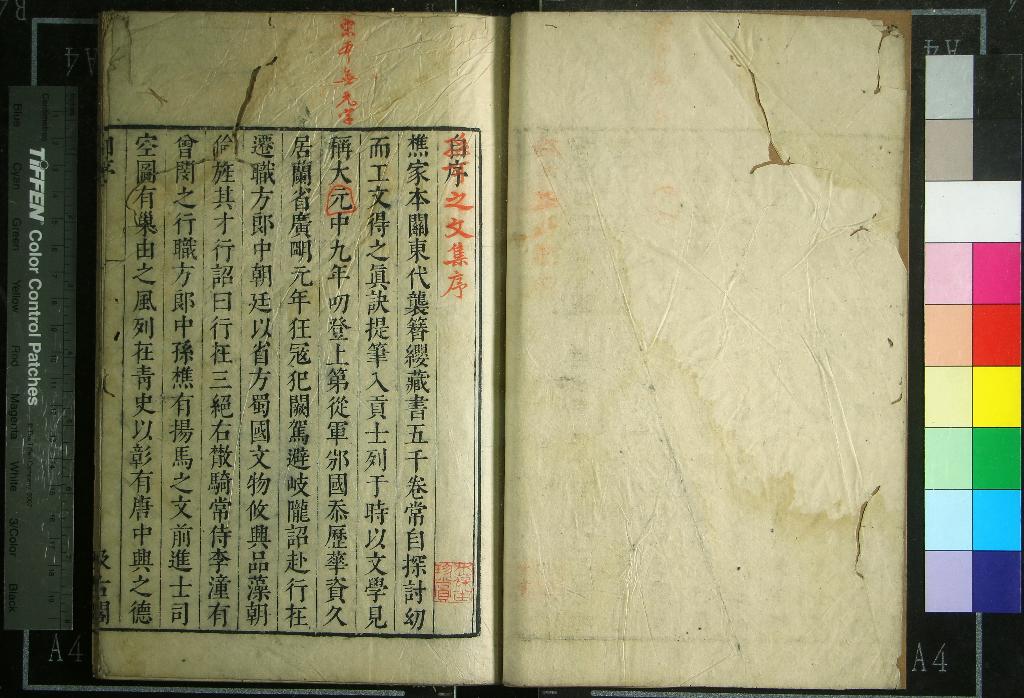 宋本無九字
自序
孫可之文集序
樵家本關東代襲簪纓藏書五千卷常自探討幼
而工文得之眞訣提筆入貢士列于時以文學見
稱大元中九年叨登上第從軍邠國忝歷華資久
居蘭省廣明元年狂寇犯闕駕避岐隴詔赴行在
遷職方郎中朝廷以省方蜀國文物攸興品藻朝
倫旌其才行詔曰行在三絕右散騎常侍李潼有
曾閔之行職方郎中孫樵有揚馬之文前進士司
空圖有巢由之風列在青史以彰有唐中興之德
汲古閣
TIFFEN Color Control Patches
Blue
Cyan
Green
Yellow
Red
Magenta
White
3/Color
Black
A4
A4
A4
A4